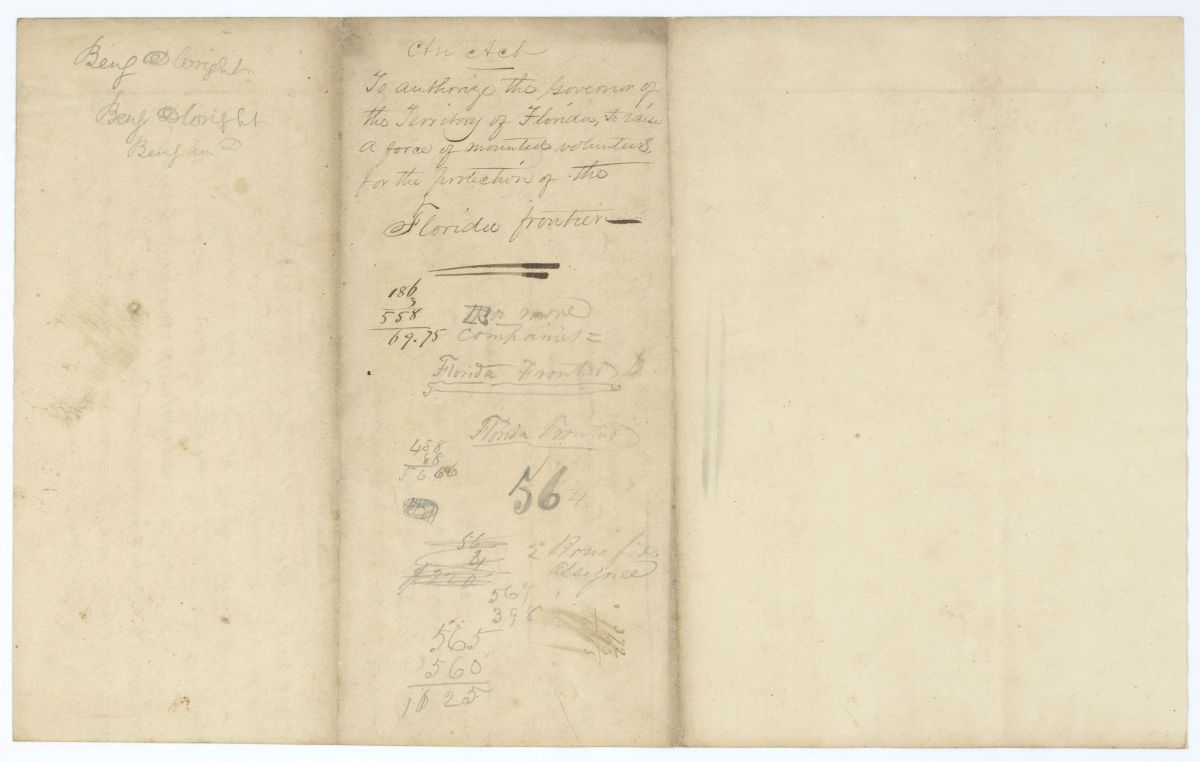 Benj D Wright
Benj D Wright
Benjamin D
An Act
To authorize the Governor of
the Territory of Florida, to raise
a force of mounted volunteers
for the protection of the
Florida frontier
186
3
558
69.75
or more
companies =
Florida Frontier
5
Florida Frontier
458
88
5666
56
4
56
4
Bona fide
assignee
564
398
565
560
1625